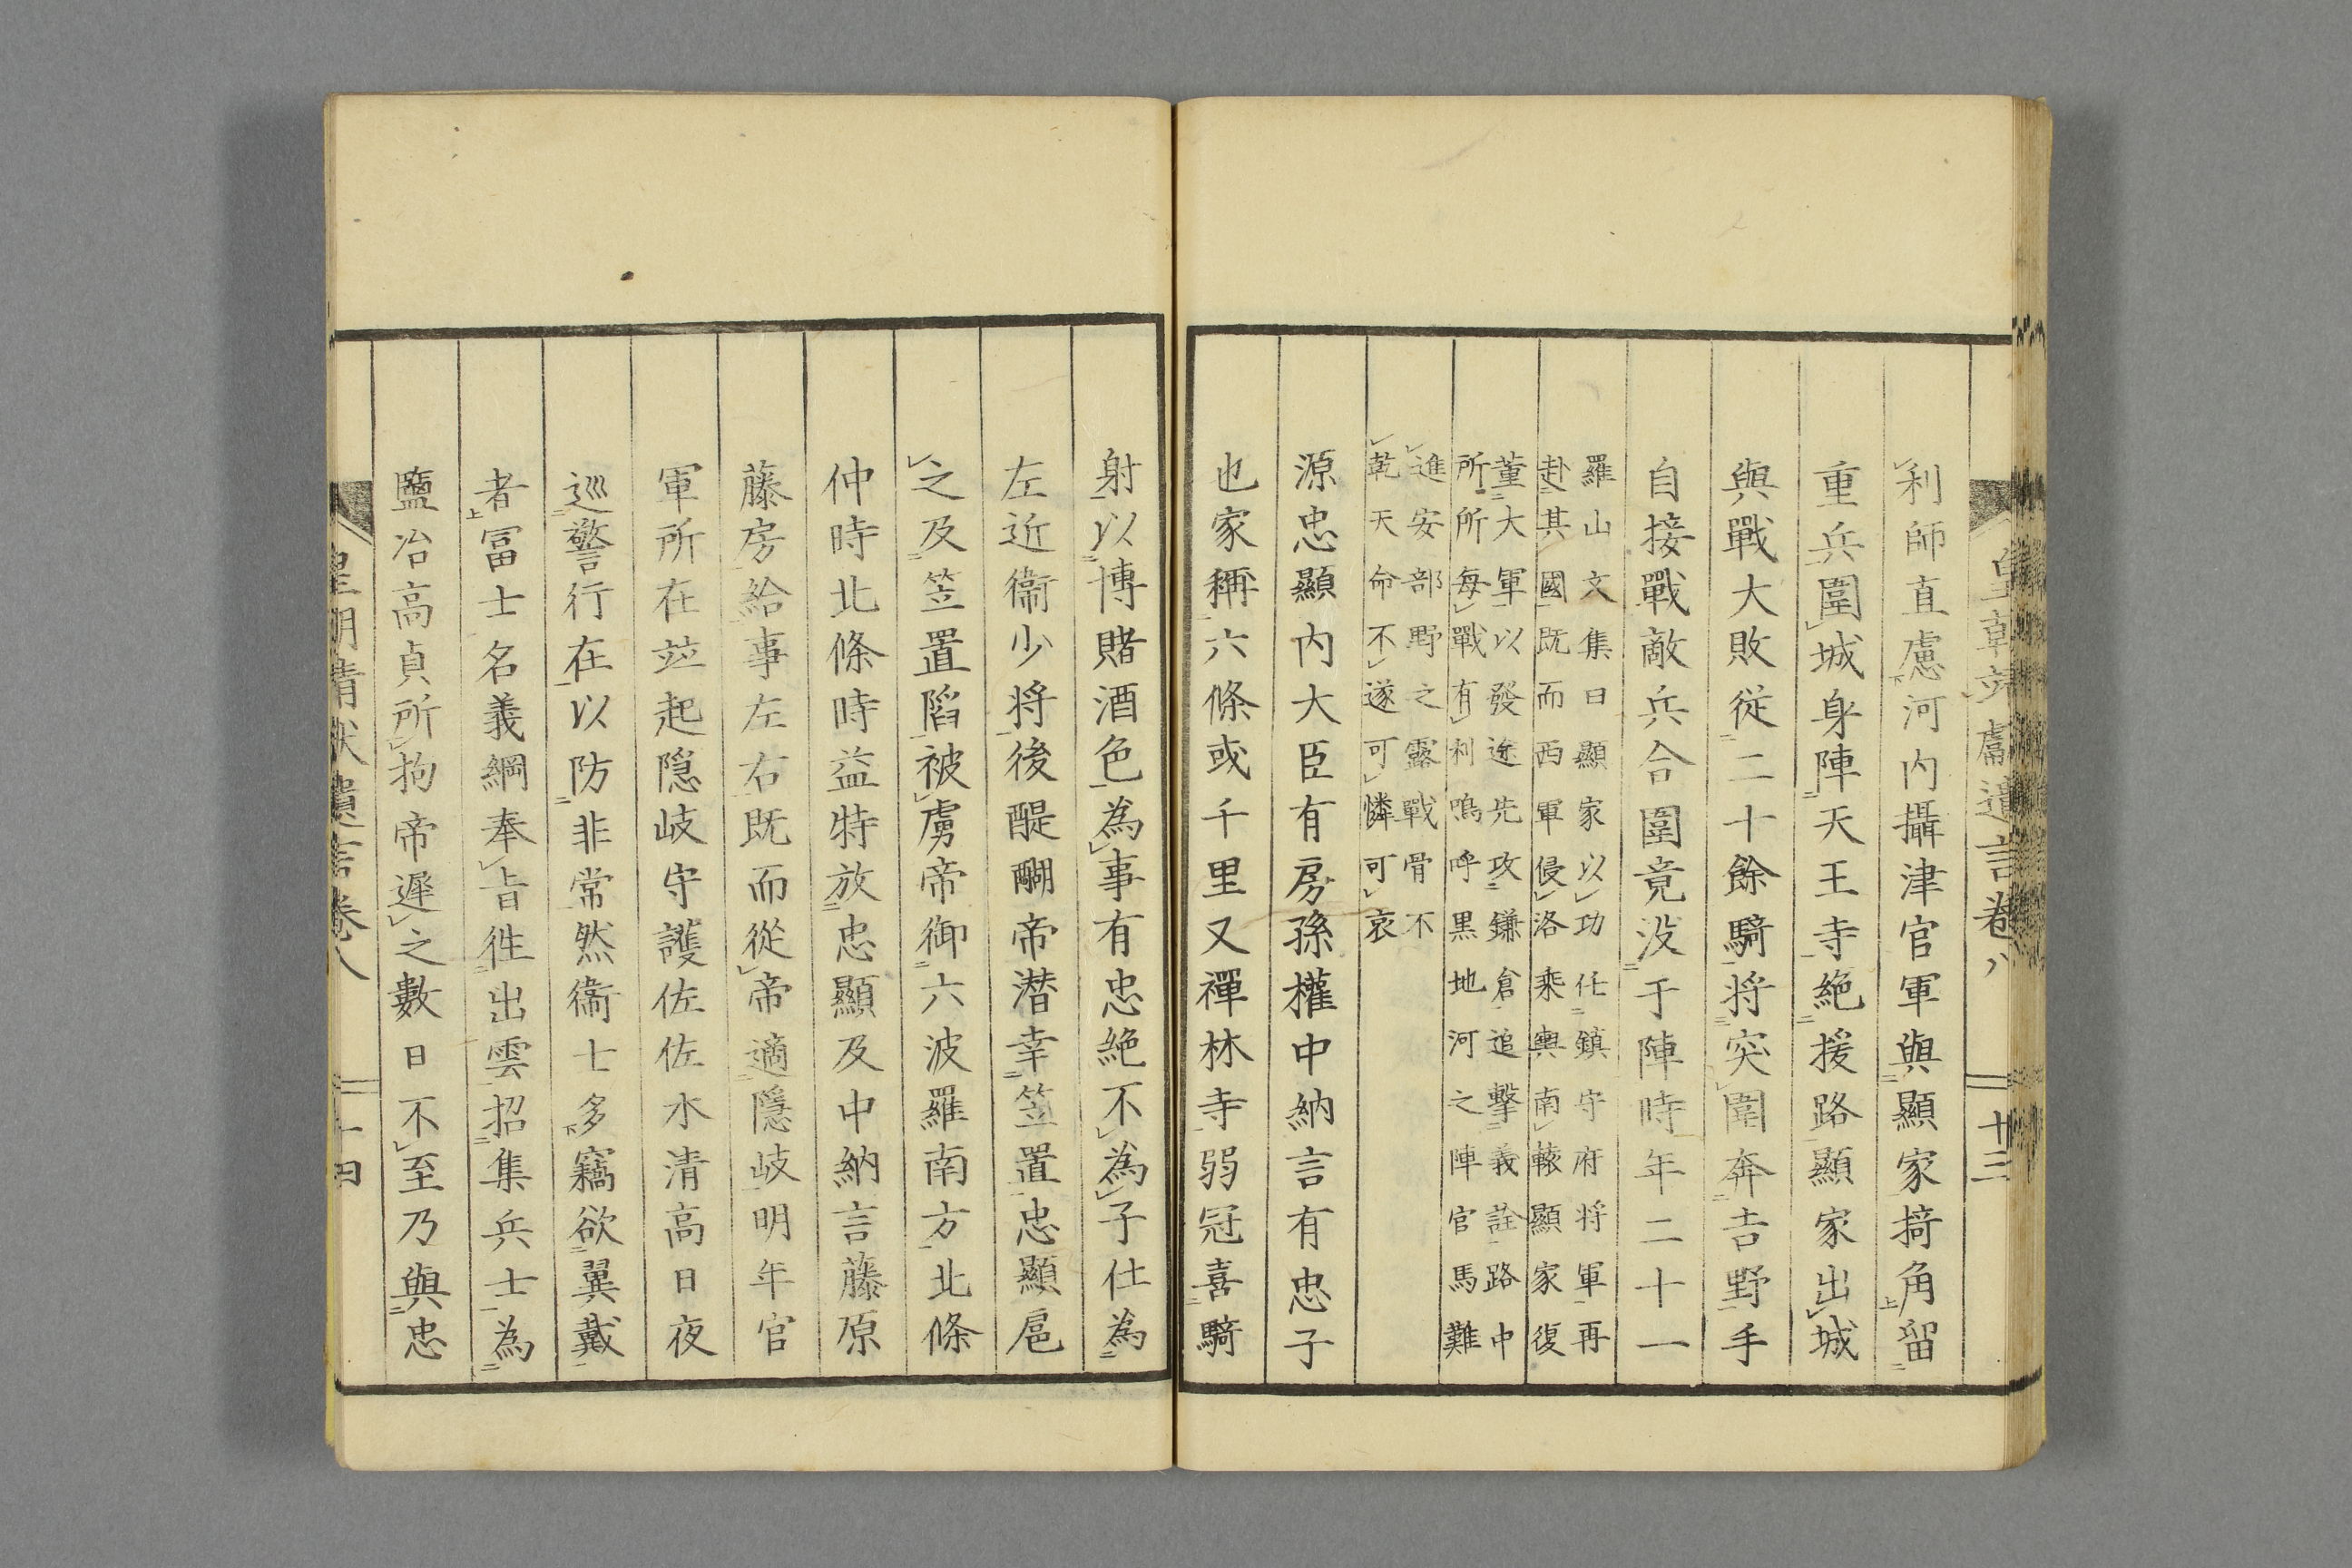 利師直慮河内攝津官軍與顯家掎角留
重兵圍城身陣天王寺絶援路顯家出城
與戰大敗従二十餘騎将突圍奔吉野手
自接戰敵兵合圍竟没于陣時年二十一
羅山文集曰顯家以功任鎮守府将軍再
赴其國既而西軍侵洛乘輿南轅顯家復
董大軍以發途先攻鎌倉追撃義詮路中
所所每戰有利嗚呼黒地河之陣官馬難
進安部野之露戰骨不
乾天命不遂可憐可哀
源忠顯内大臣有房孫權中納言有忠子
也家稱六條或千里又禪林寺弱冠喜騎
射以博賭酒色為事有忠絶不為子仕為
左近衞少将後醍醐帝潜幸笠置忠顯扈
之及笠置陷被虜帝御六波羅南方北條
仲時北條時益特放忠顯及中納言藤原
藤房給事左右既而從帝適隱岐明年官
軍所在竝起隠岐守護佐佐木清高日夜
巡警行在以防非常然衞士多竊欲翼戴
者冨士名義綱奉㫖徃出雲招集兵士為
鹽冶高貞所拘帝遲之數日不至乃與忠
遺言卷八
十三